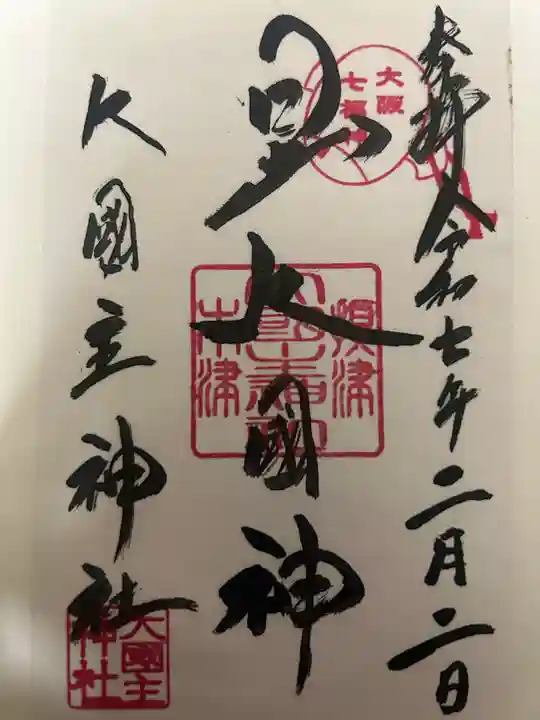 奉拝 令和七年二月二日
大阪
七福神
大國神
木津
大國主神社
大國主
神社